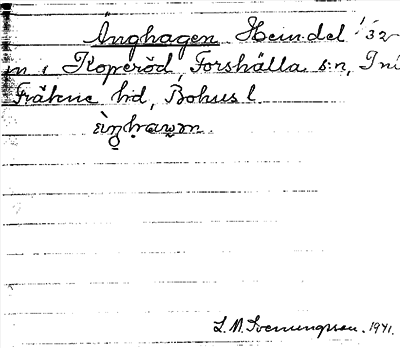 Änghagen Hemdel 1/32
m i Koperöd, Forshälla s:n, Inl
Fräkne hd, Bohusl
S. M. Svenungsson. 1941.